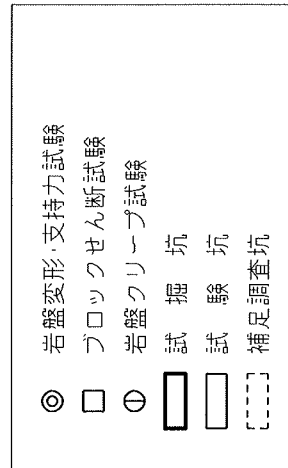 岩盤変形・支持力試験
ブロックせん断試験
岩盤クリープ試験
試掘坑
試験坑
補足調査坑